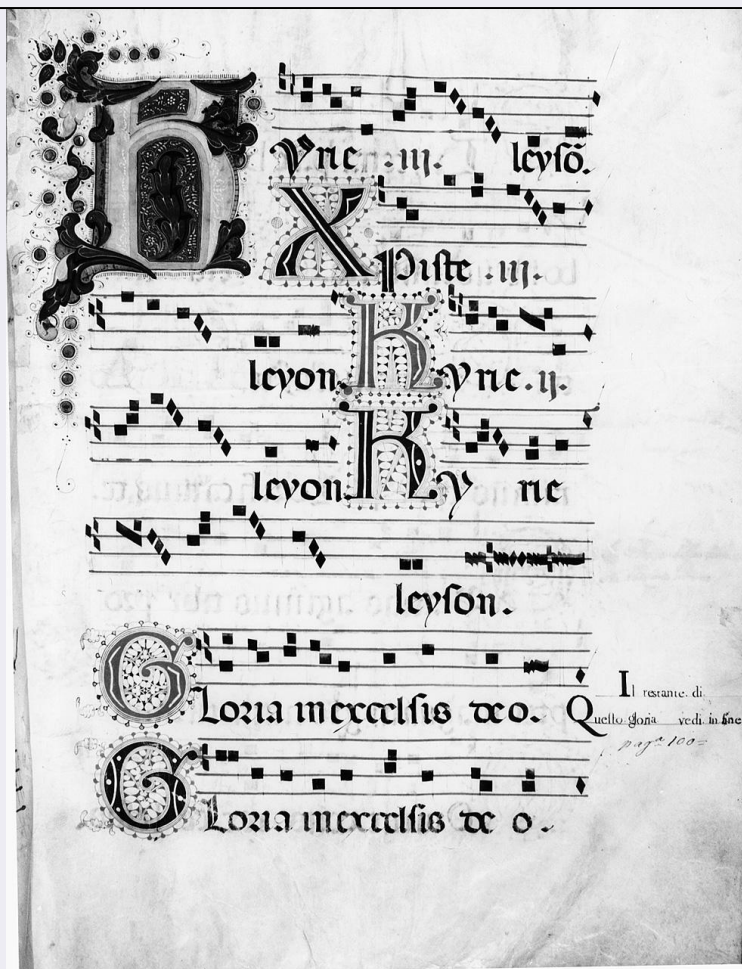 Kyrie .iij. leysō.
Xpiste .iij.
leyon. Kyrie .ij.
leyon. Kyrie
leyson.
Gloria in excelsis deo.
Il restante di
Questo gloria vedi in fine
pagᵃ 100=
Gloria in excelsis deo.